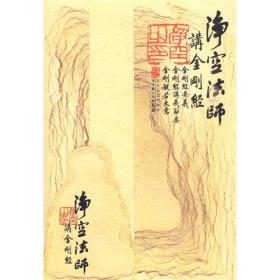 淨空法師
講金剛經
金剛經要義
金剛經講義節要
金剛般若大意
淨空法師
講金剛經